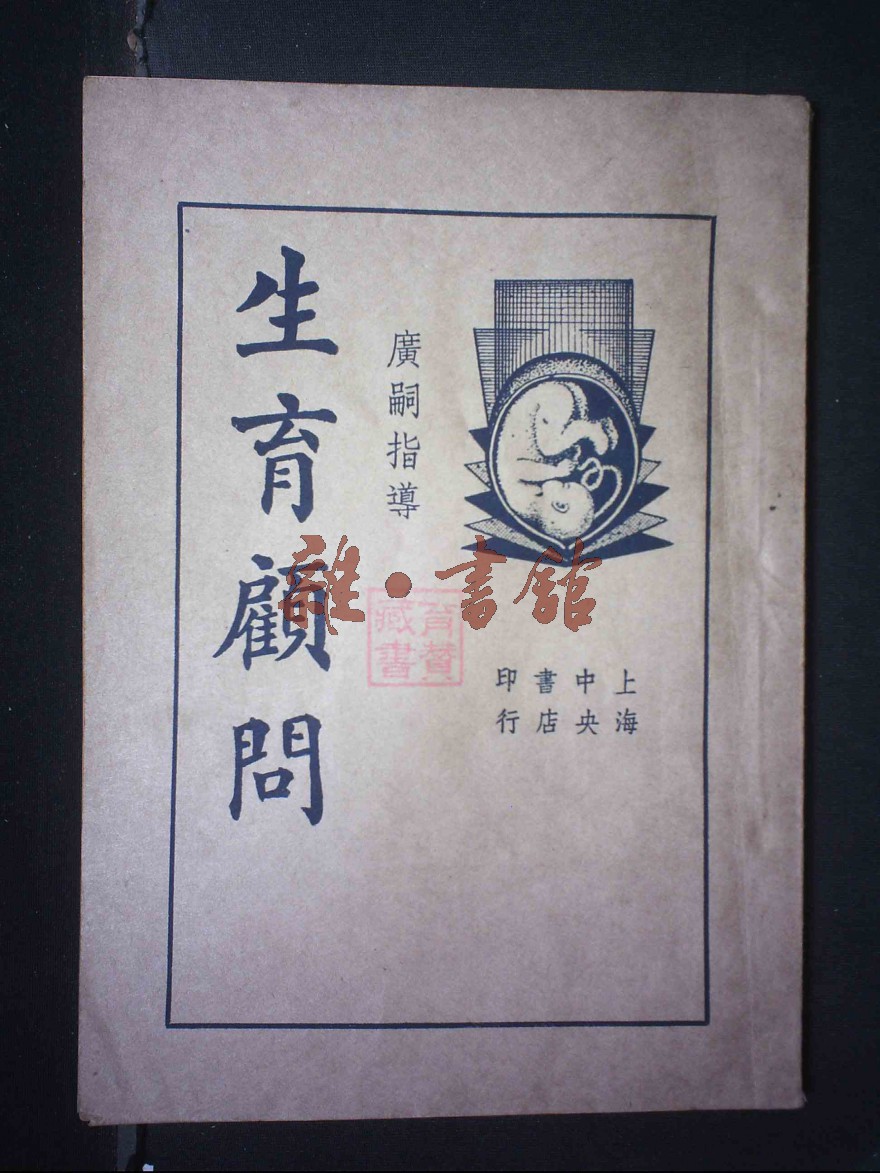 生育顧問
廣嗣指導
上海
中央
書店
印行
雜·書館
藏書